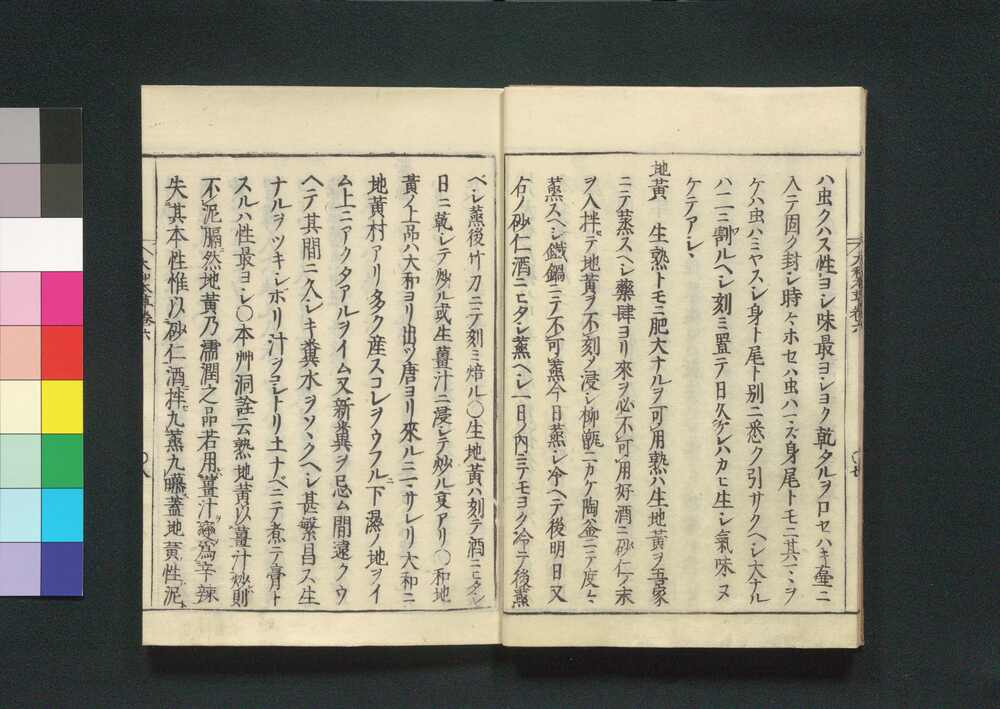 ハ虫クハス性ヨシ味最ヨシヨク乾タルヲ口セハキ壷ニ
入テ固ク封シ時々ホセハ虫ハマズ身尾トモニ其マヽヲ
ケハ虫ハミヤスシ身ト尾ト別ニ悉ク引サクヘシ大ナル
ハ二三割ルヘシ刻ミ置テ日久ケレハカヒ生シ氣味ヌ
ケテアシヽ
地黄 生熟トモニ肥大ナルヲ可用熟ハ生地黄ヲ吾家
ニテ蒸スヘシ藥肆ヨリ來ヲ必不可用好酒ニ砂仁ノ末
ヲ入拌テ地黄ヲ不刻シテ浸シ柳甑ニカケ陶釜ニテ度々
蒸スヘシ鐵鍋ニテ不可蒸今日蒸シ冷ヘテ後明日又
右ノ砂仁酒ニヒタシ蒸ヘシ一日ノ内ニテモヨク冷テ後蒸
ベシ蒸後竹刀ニテ刻ミ焙ル〇生地黄ハ刻テ酒ニヒタシ
日ニ乾シテ炒ル或生薑汁ニ浸シテ炒ル㕝アリ〇和地
黄ノ上品ハ大和ヨリ出ツ唐ヨリ來ルニマサレリ大和ニ
地黄村アリ多ク産スコレヲウフル下濕ノ地ヲイ
ム上ニアクタアルヲイム又新糞ヲ忌ム間遠クウ
ヘテ其間ニ久シキ糞水ヲソヽクヘシ甚繁昌ス生
ナルヲツキシボリ汁ヲコシトリ土ナベニテ煮テ膏ト
スルハ性最ヨシ〇本艸洞詮云熟地黄以薑汁炒則
不泥膈然地黄乃濡潤之品若用薑汁竈爲辛辣
失其本性惟以砂仁酒拌九蒸九曬蓋地黄性泥
大和本草卷六
〇八